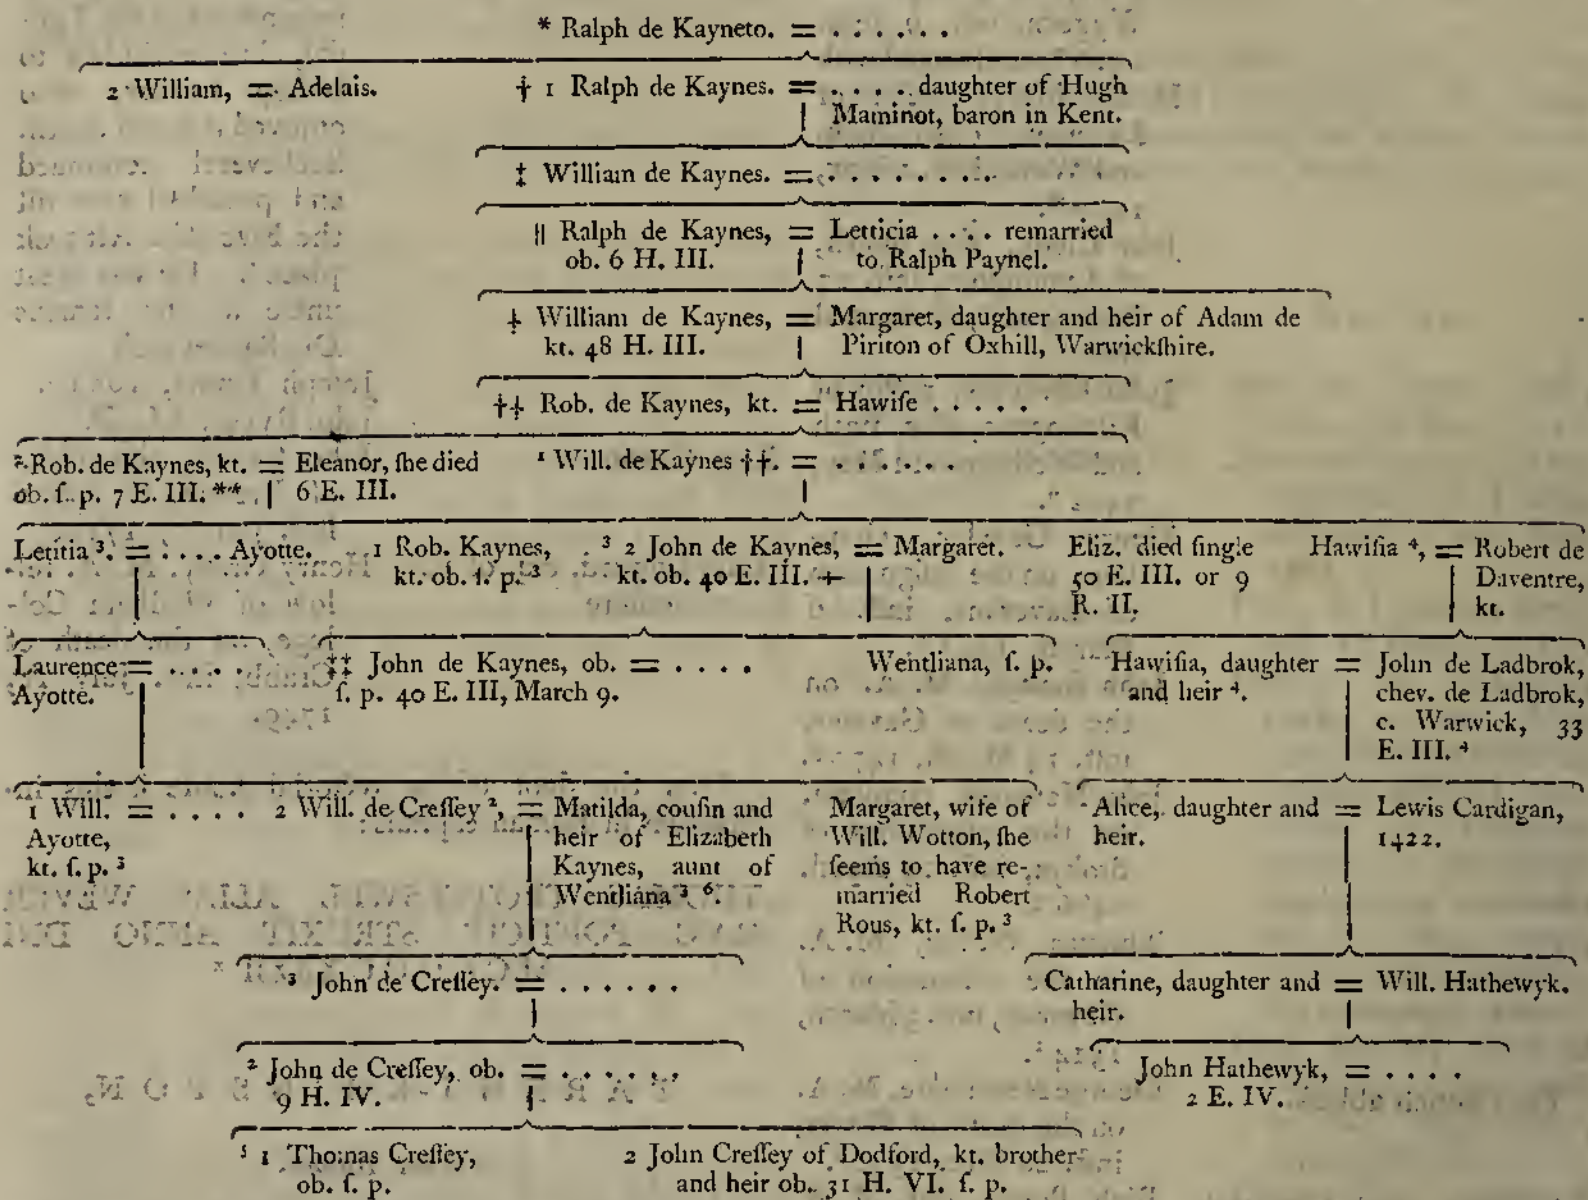 * Ralph de Kayneto. = . . . . . .
2 William, = Adelais.
† 1 Ralph de Kaynes. = . . . . daughter of Hugh
Maminot, baron in Kent.
‡ William de Kaynes. = . . . . . . . .
|| Ralph de Kaynes, = Letticia . . . . remarried
ob. 6 H. III. to Ralph Paynel.
⸸ William de Kaynes, = Margaret, daughter and heir of Adam de
kt. 48 H. III. Piriton of Oxhill, Warwickſhire.
†⸸ Rob. de Kaynes, kt. = Hawiſe . . . . .
² Rob. de Kaynes, kt. = Eleanor, ſhe died
ob. ſ. p. 7 E. III. ** 6 E. III.
¹ Will. de Kaynes ††. = . . . . . .
Letitia ³. = . . . . Ayotte.
1 Rob. Kaynes,
kt. ob. ſ. p. ³
³ 2 John de Kaynes, = Margaret.
kt. ob. 40 E. III. +
Eliz. died ſingle
50 E. III. or 9
R. II.
Hawiſia ⁴, = Robert de
Daventre,
kt.
Laurence = . . . . .
Ayotte.
‡‡ John de Kaynes, ob. = . . . .
ſ. p. 40 E. III, March 9.
Wentliana, ſ. p.
Hawiſia, daughter = John de Ladbrok,
and heir ⁴. chev. de Ladbrok,
c. Warwick, 33
E. III. ⁴
1 Will. = . . . .
Ayotte,
kt. ſ. p. ³
2 Will. de Creſſey ², = Matilda, couſin and
heir of Elizabeth
Kaynes, aunt of
Wentliana ³ ⁶.
Margaret, wife of
Will. Wotton, ſhe
ſeems to have re-
married Robert
Rous, kt. ſ. p. ³
Alice, daughter and = Lewis Cardigan,
heir. 1422.
³ John de Creſſey. = . . . . . .
Catharine, daughter and = Will. Hathewyk.
heir.
² John de Creſſey, ob. = . . . . . .
9 H. IV.
John Hathewyk, = . . . .
2 E. IV.
⁵ 1 Thomas Creſſey,
ob. ſ. p.
2 John Creſſey of Dodford, kt. brother
and heir ob. 31 H. VI. ſ. p.